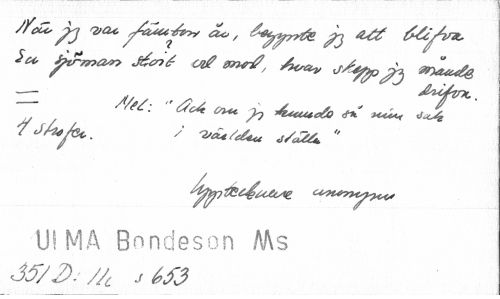 När jag var fämton år, begynte jag att blifva
En sjöman stoit ? vel mod, hvar skepp jag månde
drifva.
4 strofer.
Mel: "Ack om jag kunde så min sak
i världen ställa"
anonym
ULMA Bondeson Ms
351 D: 11c s 653